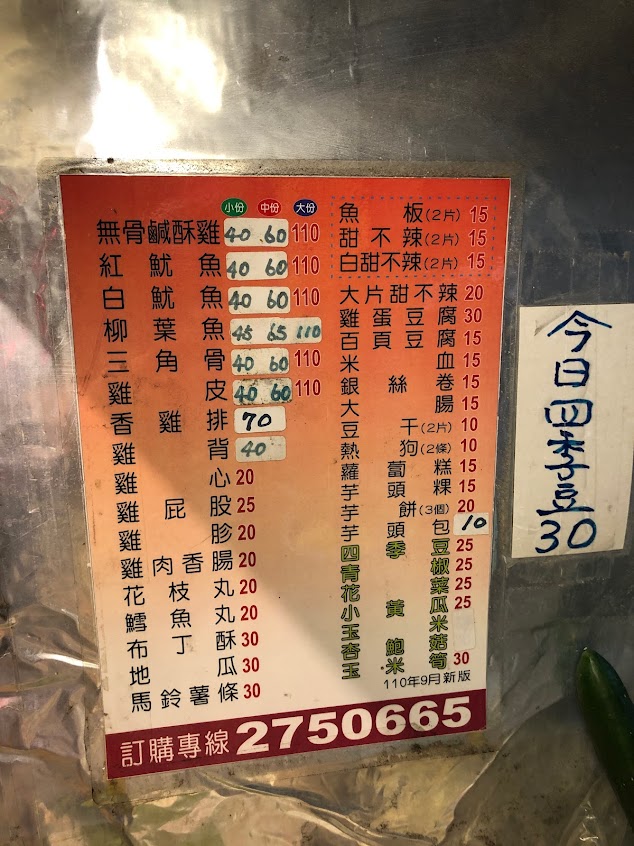 小份 中份 大份
無骨鹹酥雞 40 60 110
紅魷魚 40 60 110
白魷魚 40 60 110
柳葉魚 45 65 110
三角骨 40 60 110
雞皮 40 60 110
香雞排 70
雞背 40
雞心 20
雞屁股 25
雞胗 20
雞肉香腸 20
花枝丸 20
鱈魚丸 20
布丁酥 30
地瓜 30
馬鈴薯條 30
魚板(2片) 15
甜不辣(2片) 15
白甜不辣(2片) 15
大片甜不辣 20
雞蛋豆腐 30
百頁豆腐 15
米血 15
銀絲卷 15
大腸 15
豆干(2片) 10
熱狗(2條) 10
蘿蔔糕 15
芋頭粿 15
芋餅(3個) 20
芋頭包 10
四季豆 25
青椒 25
花菜 25
小黃瓜 25
玉米
杏鮑菇
玉米筍 30
110年9月新版
訂購專線2750665
今日四季豆30